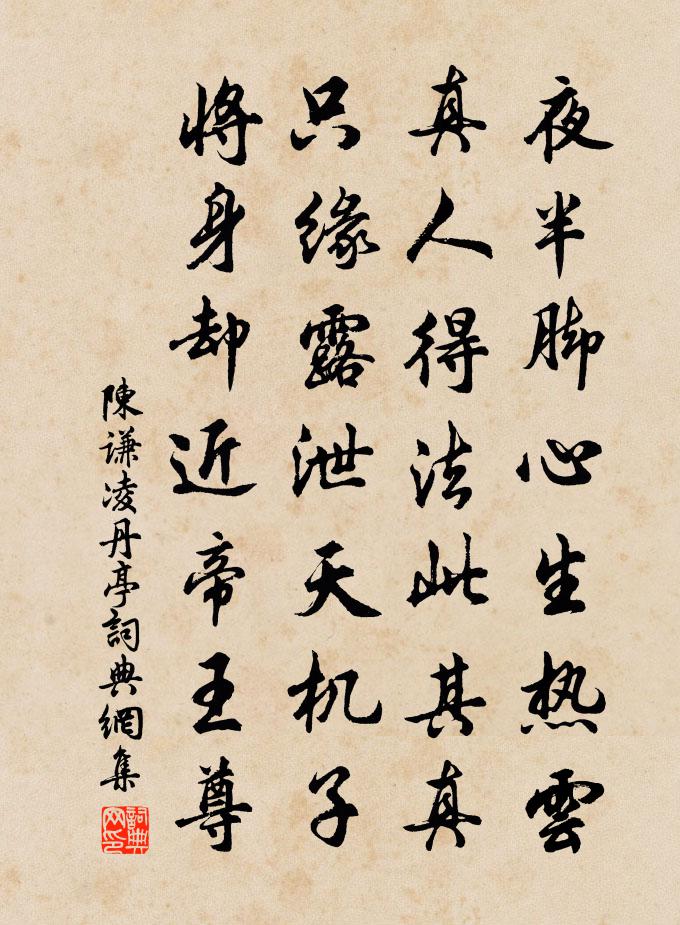 夜半脚心生热雲
真人得法此其真
只缘露泄天机子
将身却近帝王尊
陳谦凌丹亭詞典網集
詞典网印